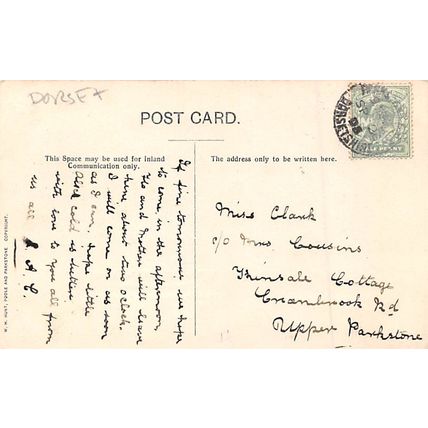 DORSET
POST CARD.
This Space may be used for inland
Communication only.
The address only to be written here.
If fine tomorrow we hope
to come in the afternoon,
Flo and Mother will leave
here about two o'clock.
I will come on as soon
as I can, hope little
cold is better.
with love to you all from
us all A. C.
Miss Clark
c/o Mrs Cousins
Kinsale Cottage
Cranbrook Rd
Upper Parkstone
POOLE AND PARKSTONE. COPYRIGHT.